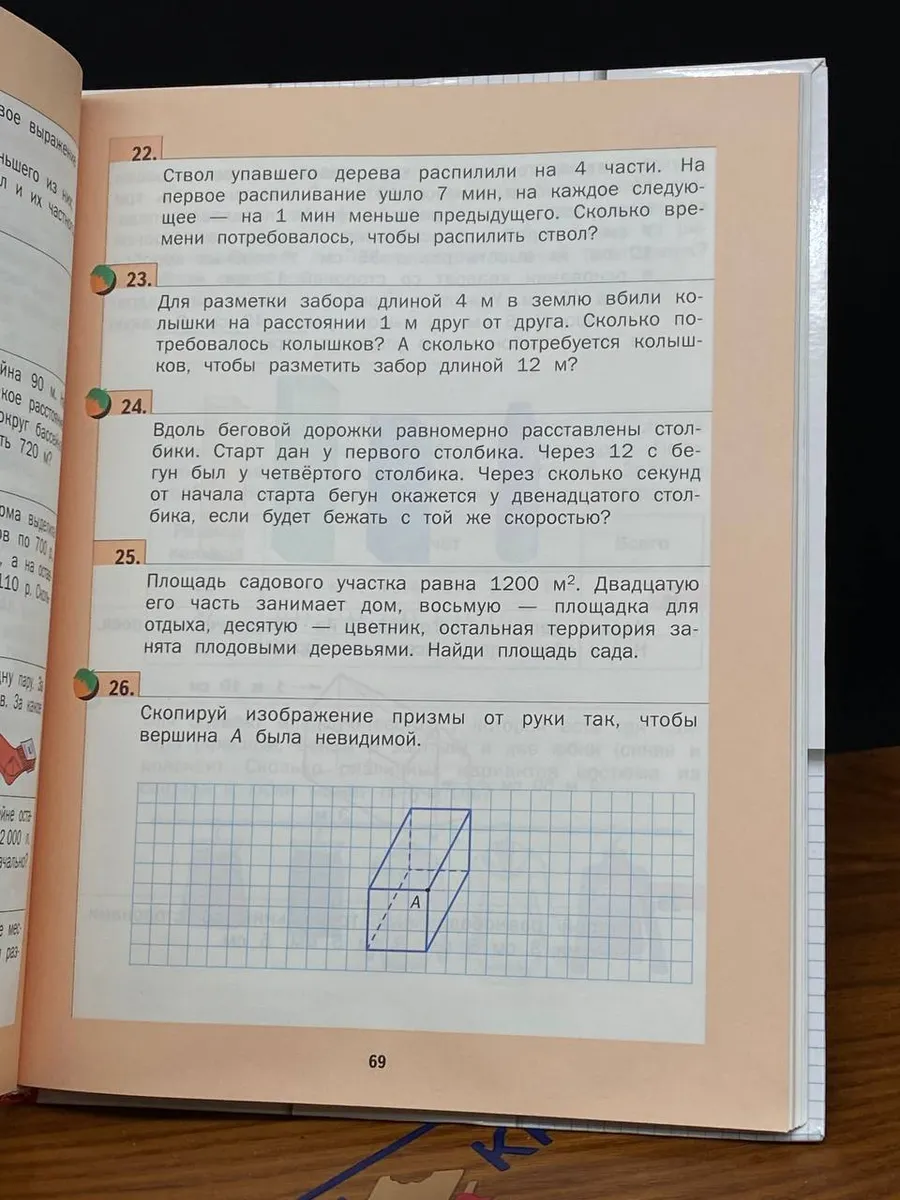 вое выражение
ньшего из них,
л и их частного
йна 90 м.
кое расстояни
округ бассейн
ть 720 м?
рма выдели
ов по 700 р.
, а на
110 р.
ну пару. За
в. За какое
йне оста
2 000 л.
чально?
е мес-
раз-
22.
Ствол упавшего дерева распилили на 4 части. На
первое распиливание ушло 7 мин, на каждое следую-
щее — на 1 мин меньше предыдущего. Сколько вре-
мени потребовалось, чтобы распилить ствол?
23.
Для разметки забора длиной 4 м в землю вбили ко-
лышки на расстоянии 1 м друг от друга. Сколько по-
требовалось колышков? А сколько потребуется колыш-
ков, чтобы разметить забор длиной 12 м?
24.
Вдоль беговой дорожки равномерно расставлены стол-
бики. Старт дан у первого столбика. Через 12 с бе-
гун был у четвёртого столбика. Через сколько секунд
от начала старта бегун окажется у двенадцатого стол-
бика, если будет бежать с той же скоростью?
25.
Площадь садового участка равна 1200 м². Двадцатую
его часть занимает дом, восьмую — площадка для
отдыха, десятую — цветник, остальная территория за-
нята плодовыми деревьями. Найди площадь сада.
26.
Скопируй изображение призмы от руки так, чтобы
вершина А была невидимой.
А
69